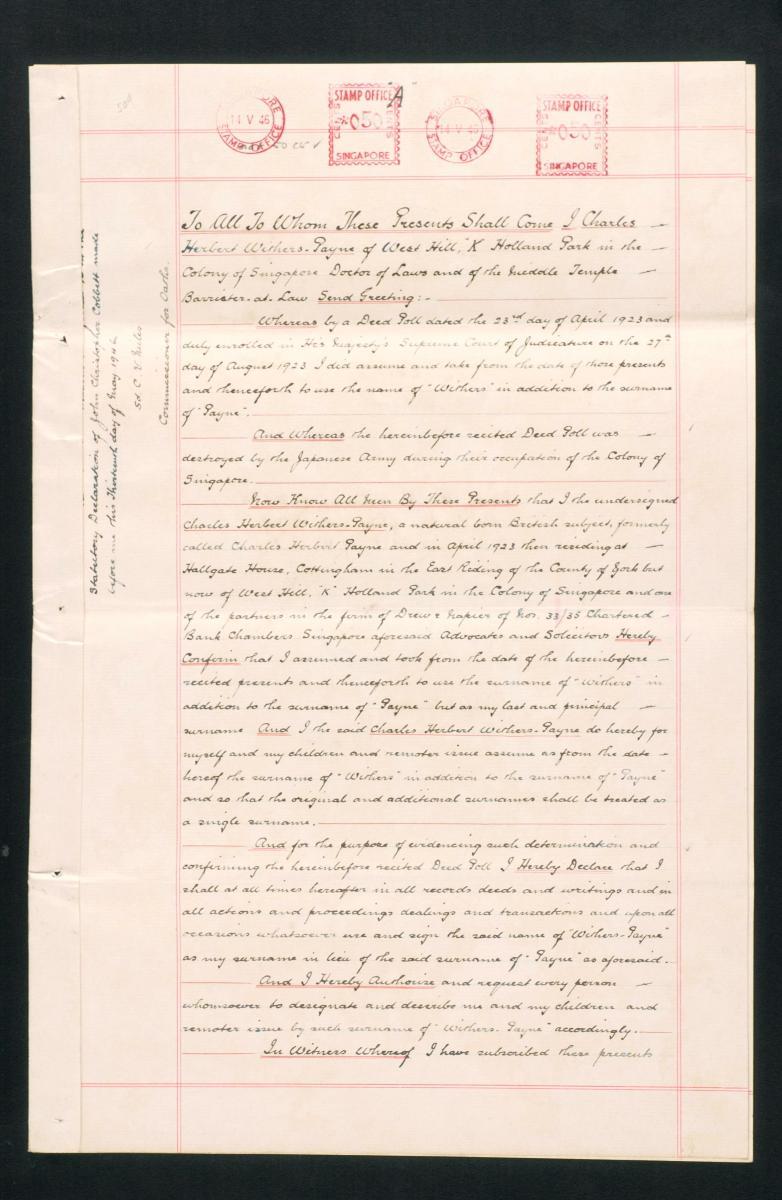 500
SINGAPORE
14 V 46
STAMP OFFICE
STAMP OFFICE
CENTS 050 CENTS
SINGAPORE
"A"
SINGAPORE
14 V 46
STAMP OFFICE
STAMP OFFICE
050 CENTS
SINGAPORE
To All To Whom These Presents Shall Come I Charles
Herbert Withers-Payne of West Hill, "K" Holland Park in the
Colony of Singapore Doctor of Laws and of the Middle Temple
Barrister-at-Law Send Greeting:-
Whereas by a Deed Poll dated the 23rd day of April 1923 and
duly enrolled in His Majesty's Supreme Court of Judicature on the 27th
day of August 1923 I did assume and take from the date of those presents
and thenceforth to use the name of "Withers" in addition to the surname
of "Payne".
And Whereas the hereinbefore recited Deed Poll was
destroyed by the Japanese Army during their occupation of the Colony of
Singapore.
Now Know All Men By These Presents that I the undersigned
Charles Herbert Withers-Payne, a natural born British subject, formerly
called Charles Herbert Payne and in April 1923 then residing at
Hallgate House, Cottingham in the East Riding of the County of York but
now of West Hill, "K" Holland Park in the Colony of Singapore and one
of the partners in the firm of Drew & Napier of Nos. 33/35 Chartered
Bank Chambers Singapore aforesaid Advocates and Solicitors Hereby
Confirm that I assumed and took from the date of the hereinbefore
recited presents and thenceforth to use the surname of "Withers" in
addition to the surname of "Payne" but as my last and principal
surname And I the said Charles Herbert Withers-Payne do hereby for
myself and my children and remoter issue assume as from the date
hereof the surname of "Withers" in addition to the surname of "Payne"
and so that the original and additional surnames shall be treated as
a single surname.
And for the purpose of evidencing such determination and
confirming the hereinbefore recited Deed Poll I Hereby Declare that I
shall at all times hereafter in all records deeds and writings and in
all actions and proceedings dealings and transactions and upon all
occasions whatsoever use and sign the said name of "Withers-Payne"
as my surname in lieu of the said surname of "Payne" as aforesaid.
And I Hereby Authorise and request every person
whomsoever to designate and describe me and my children and
remoter issue by such surname of "Withers-Payne" accordingly.
In Witness Whereof I have subscribed these presents
Statutory Declaration of John Christopher Cobbett made
before me this Thirteenth day of May 1946
Sd. C. V. Miles
Commissioner for Oaths.